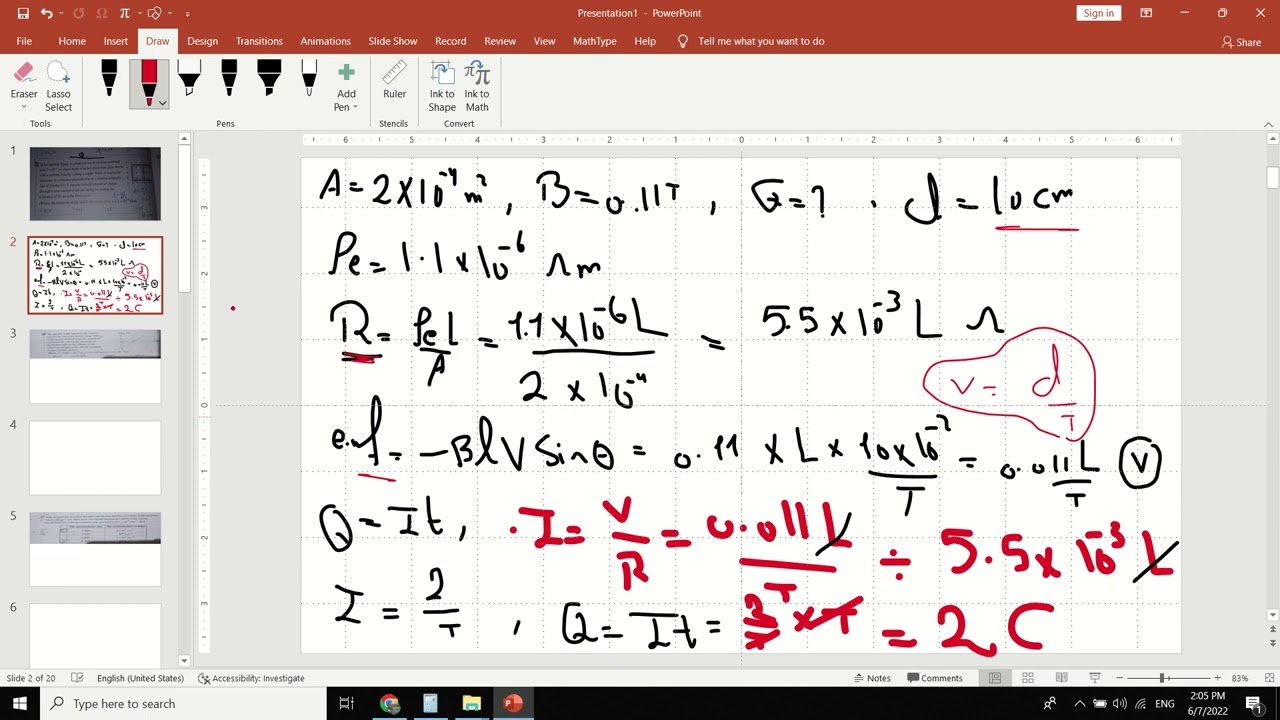 Presentation1 - PowerPoint
Sign in
File Home Insert Draw Design Transitions Animations Slide Show Record Review View MathType Help Tell me what you want to do
Share
Eraser Lasso Select Add Pen Ruler Ink to Shape Ink to Math
Tools Pens Stencils Convert
6 5 4 3 2 1 0 1 2 3 4 5 6
1
2
3
4
5
6
A = 2×10⁻⁴ m², B = 0.11 T, Q = ? , d = 10 cm
ρe = 1.1×10⁻⁶ Ωm
R = ρeL/A = 1.1×10⁻⁶L / 2×10⁻⁴ = 5.5×10⁻³ L Ω
V = d/T
e.mf = -BlV sinθ = 0.11 × L × 10×10⁻²/T = 0.011L/T (V)
Q = It, I = V/R = 0.011L/T ÷ 5.5×10⁻³ L
I = 2/T , Q = It = 2/T × T = 2 C
Slide 2 of 20 English (United States) Accessibility: Investigate Notes Comments 83%
Type here to search
ENG
2:05 PM
6/7/2022